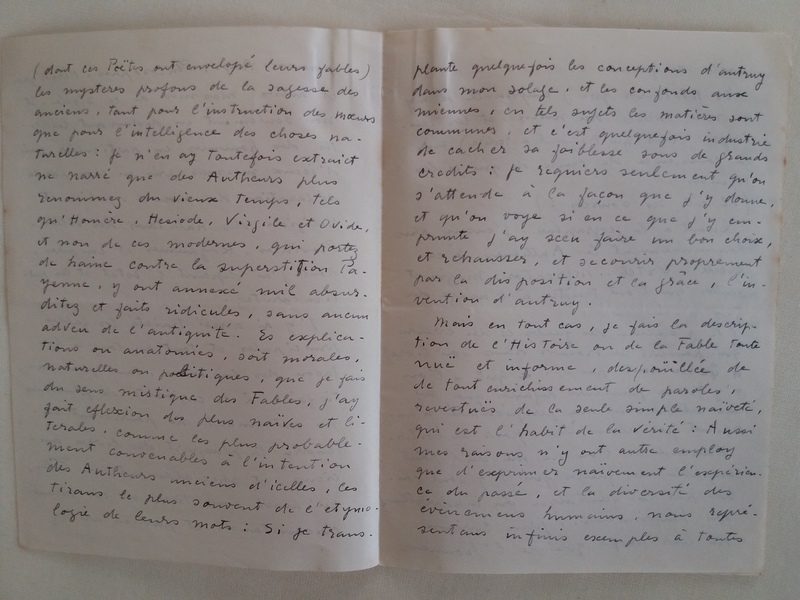 (dont ces Poëtes ont envelopé leurs fables)
les mysteres profons de la sagesse des
anciens, tant pour l'instruction des mœurs
que pour l'intelligence des choses na-
turelles : je n'en ay toutefois extraict
ne narré que des Autheurs plus
renommez du vieux temps, tels
qu'Homère, Hesiode, Virgile et Ovide,
et non de ces modernes, qui portez
de haine contre la superstition Pa-
yenne, y ont annexé mil absur-
ditez et faits ridicules, sans aucun
adveu de l'antiquité. Es explica-
tions ou anatomies, soit morales,
naturelles ou politiques, que je fais
du sens mistique des Fables, j'ay
fait eflexion des plus naïves et li-
terales, comme les plus probable-
ment convenables à l'intention
des Autheurs anciens d'icelles, les
tirans le plus souvent de l'etymo-
logie de leurs mots : Si je trans-
plante quelquefois les conceptions d'autruy
dans mon solage, et les confonds aux
miennes, en tels sujets les matières sont
communes, et c'est quelquefois industrie
de cacher sa faiblesse sous de grands
credits : je requiers seulement qu'on
s'attende à la façon que j'y donne,
et qu'on voye si en ce que j'y em-
prunte j'ay sceu faire un bon choix,
et rehausser, et secourir proprement
par la disposition et la grâce, l'in-
vention d'autruy.
Mais en tout cas, je fais la descrip-
tion de l'Histoire ou de la Fable toute
nuë et informe, despoüillée de
de tout enrichissement de paroles,
revestuës de la seule simple naïveté,
qui est l'habit de la vérité : Aussi
mes raisons n'y ont autre employ
que d'exprimer naïvement l'expérien-
ce du passe, et la diversité des
évènemens humains, nous repré-
sentans infinis exemples à toutes